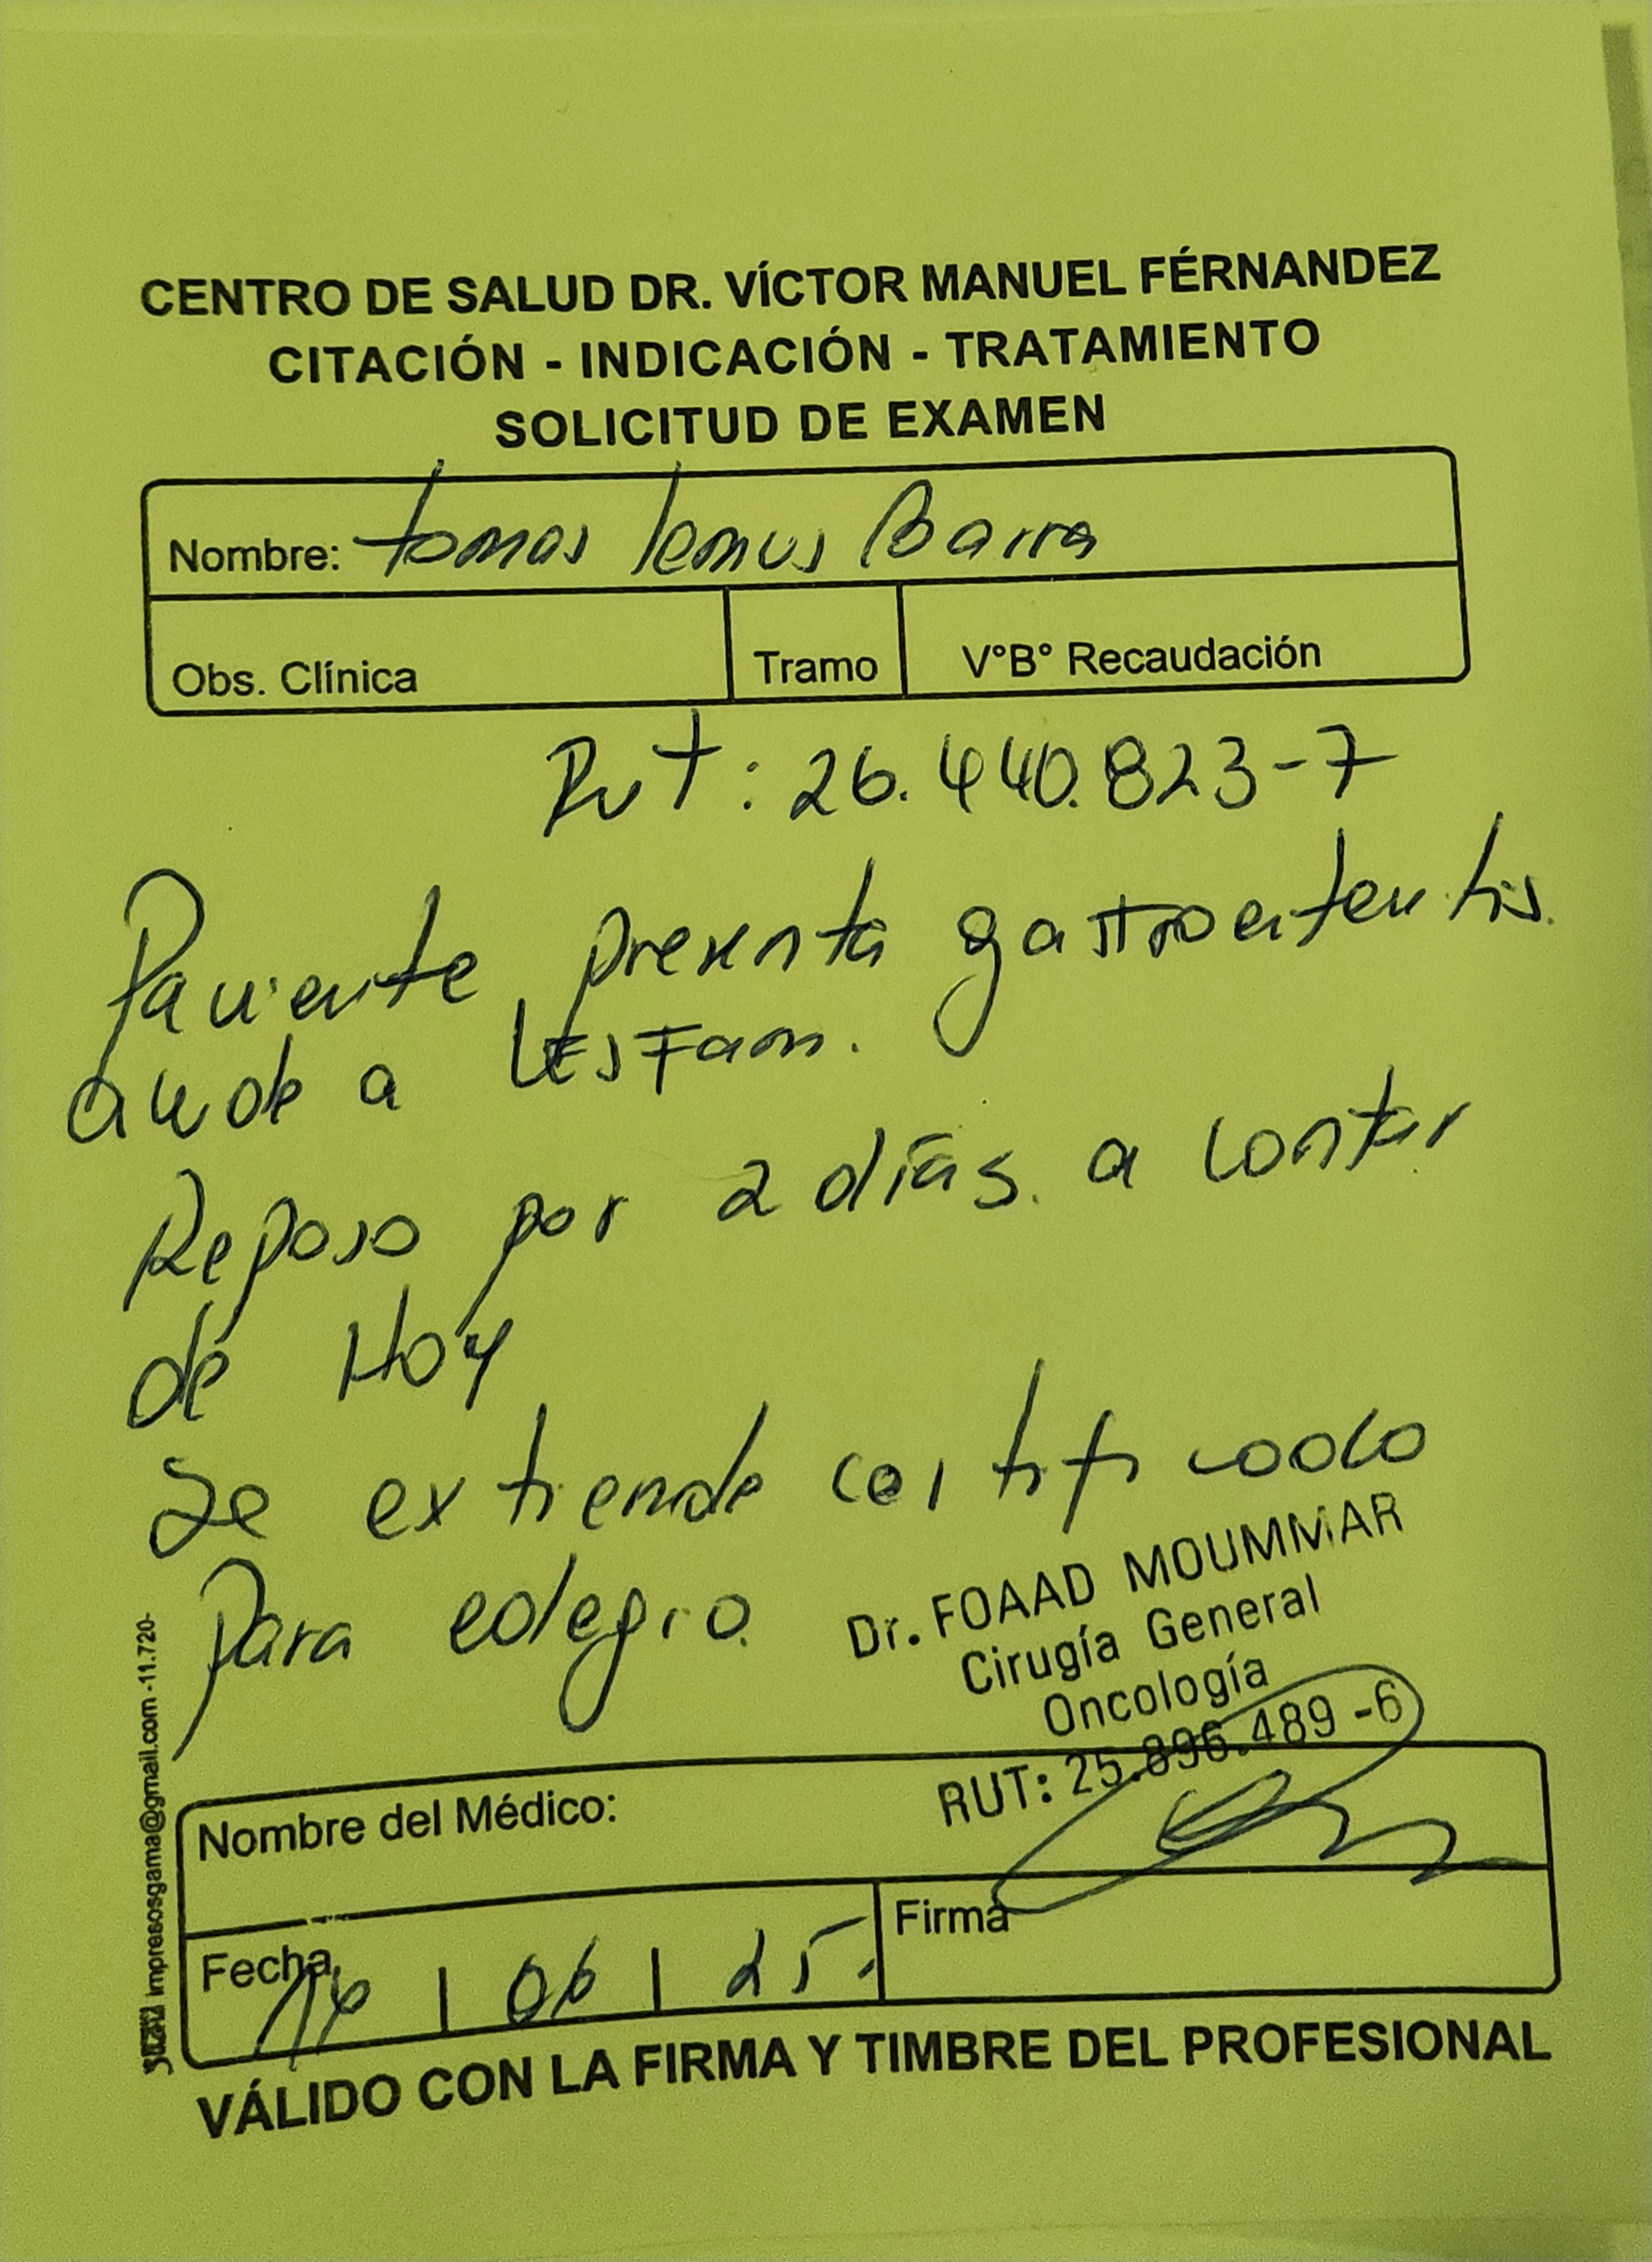 CENTRO DE SALUD DR. VÍCTOR MANUEL FÉRNANDEZ
CITACIÓN - INDICACIÓN - TRATAMIENTO
SOLICITUD DE EXAMEN
Nombre: tomas lemus Ibarra
Obs. Clínica
Tramo
V°B° Recaudación
Rut: 26.440.823-7
Paciente presenta gastroenteritis.
acude a cesfam.
Reposo por 2 días. a contar
de Hoy
Se extiende certificado
Para colegio.
Dr. FOAAD MOUMMAR
Cirugía General
Oncología
RUT: 25.896.489-6
Nombre del Médico:
Fecha / 06 / 25.
Firma
VÁLIDO CON LA FIRMA Y TIMBRE DEL PROFESIONAL
impresosgama@gmail.com -11.720-